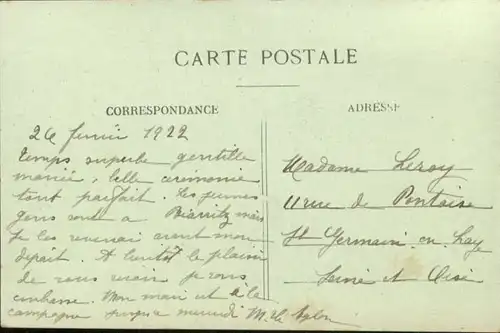 CARTE POSTALE
CORRESPONDANCE
ADRESSE
26 fevrier 1922
temps superbe gentille
mariée, belle ceremonie
tout parfait. Les jeunes
gens sont a Biarritz mais
je les reverrai avant mon
depart. A bientôt le plaisir
de vous revoir je vous
embrasse. Mon mari est à la
campagne jusqu'a mercredi M.
Madame Leroy
11 rue de Pontoise
St Germain en Laye
Seine et Oise